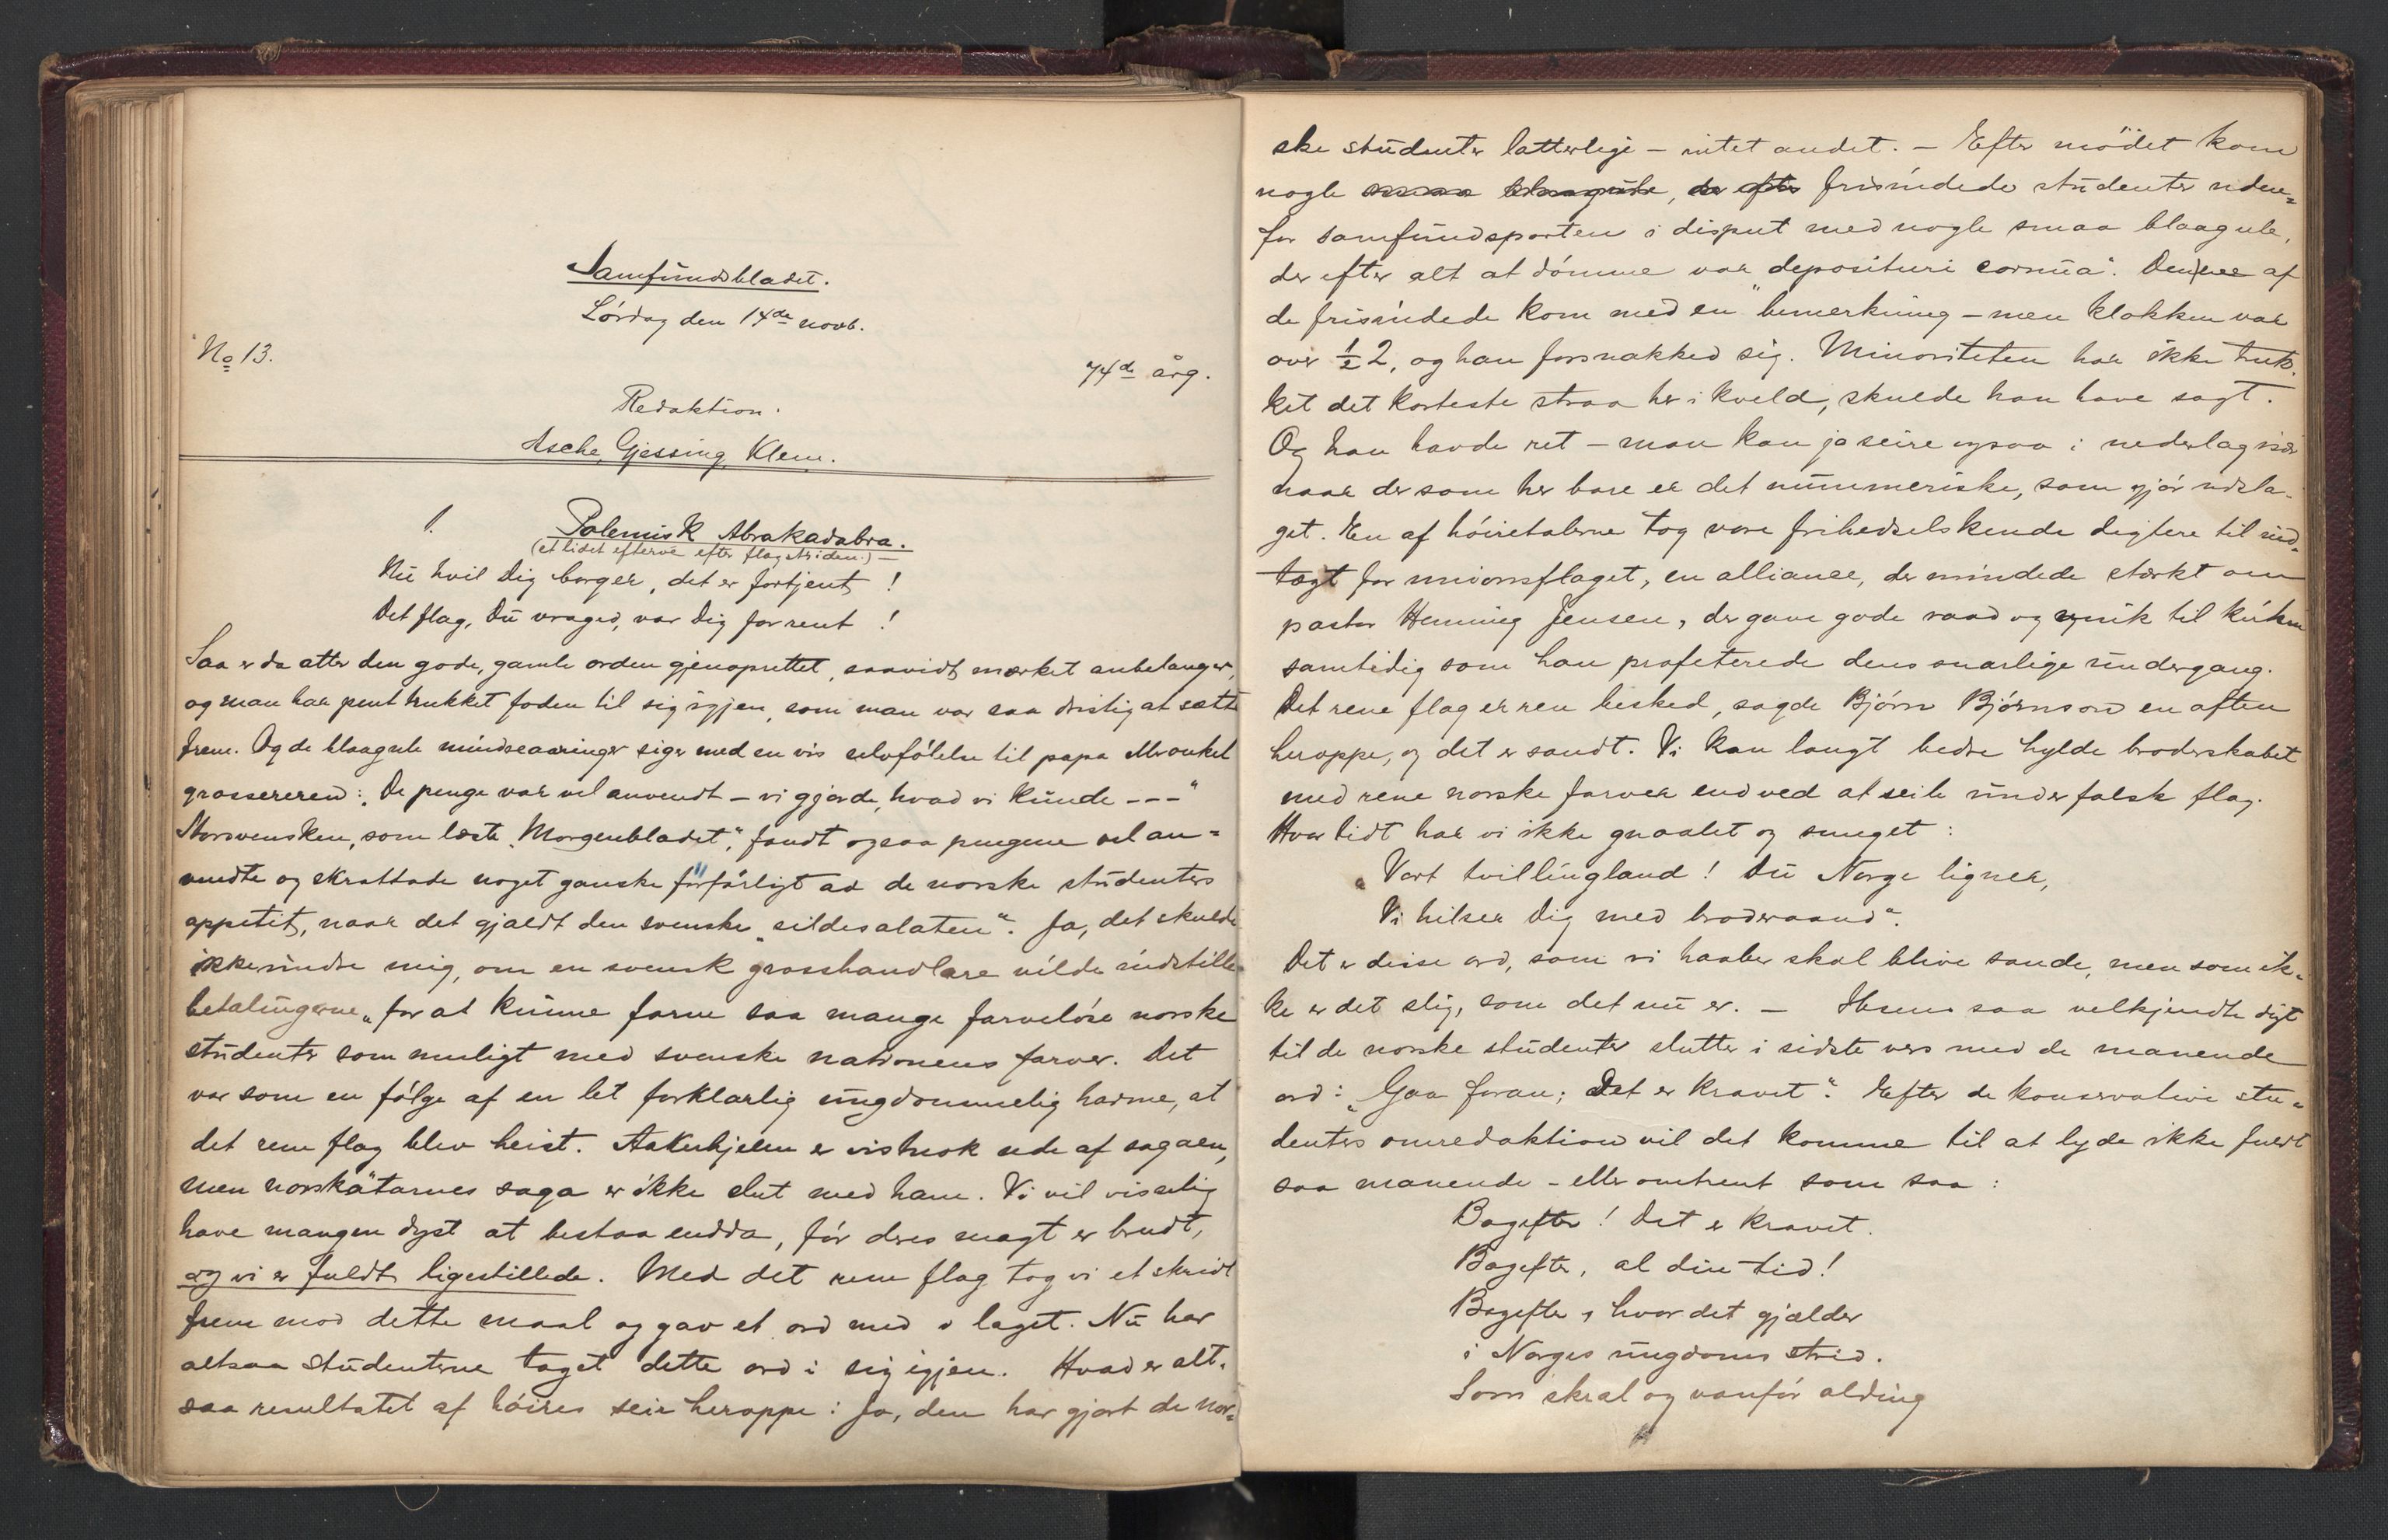 Samfundsbladet.
Lördag den 14de novb.
No 13.
74de årg.
Redaktion.
Asche, Gjessing, Klem.
1.
Polemisk Abrakadabra.
(et lidet efterve efter flagstriden.) –
Nu hvil Dig borger, det er fortjent !
Det flag, Du vraged, var Dig for rent !
Saa er da atter den gode, gamle orden gjenoprettet, saavidt mærket anbelanger,
og man har pent trukket foden til sig igjen, som man var saa dristig at sætte
frem. Og de blaagule mindreaaringer siger med en vis selvfölelse til papa eller onkel
grossereren: „De penge var vel anvendt – vi gjorde, hvad vi kunde – – –"
Storsvensken, som læste „Morgenbladet", fandt ogsaa pengene vel an=
vendte og skrattade noget ganske förfärligt ad de norske studenters
appetit, naar det gjaldt den svenske „sildesalaten". Ja, det skulde
ikke undre mig, om en svensk grosshandlare vilde indstille
betalingerne „for at kunne farve saa mange farvelöse norske
studenter som muligt med svenske nationens farver. Det
var som en fölge af en let forklarlig ungdommelig harme, at
det rene flag blev heist. Aakerhjelm er vistnok ude af sagaen,
men norskätarnes saga er ikke slut med ham. Vi vil visselig
have mangen dyst at bestaa endda, för deres magt er brudt,
og vi er fuldt ligestillede. Med det rene flag tog vi et skridt
frem mod dette maal og gav et ord med i laget. Nu har
altsaa studenterne taget dette ord i sig igjen. Hvad er alt=
saa resultatet af höires seir heroppe: Ja, den har gjort de nor=
ske studenter latterlige – intet andet. – Efter mödet kom
nogle frisindede studenter uden=
for samfundsporten i disput med nogle smaa blaagule,
der efter alt at dömme var „deposituri cornua". Den ene af
de frisindede kom med en bemerkning – men klokken var
over ½ 2, og han forsnakked sig. Minoriteten har ikke truk=
ket det korteste straa her i kveld, skulde han have sagt.
Og han havde ret – man kan ja seire ogsaa i nederlag især
naar der som her bare er det nummeriske, som gjör udsla=
get. En af höiretalerne tog vore frihedselskende digtere til ind=
tægt for unionsflaget, en alliance, der mindede stærkt om
pastor Henning Jensen, der gave gode raad og vink til kirken
samtidig som han profeterede dens snarlige undergang.
Det rene flag er ren besked, sagde Björn Björnson en aften
heroppe, og det er sandt. Vi kan langt bedre hylde broderskabet
med rene norske farver end ved at seile under falsk flag.
Hvor tidt har vi ikke graalet og sunget :
„Vort tvillingland ! Du Norge ligner,
Vi hilser Dig med broderaand".
Det er disse ord, som vi haaber skal blive sande, men som ik=
ke er det slig, som det nu er. – Ibsens saa velkjendte digt
til de norske studenter slutter i sidste vers med de manende
ord: „Gaa foran; Det er kravet". Efter de konservative stu=
denters omredaktion vil det komme til at lyde ikke fuldt
saa manende – eller omtrent som saa :
Bagefter ! Det er kravet.
Bagefter, al din tid!
Bagefter, hvor det gjælder
i Norges ungdoms strid.
Som skral og vanför olding